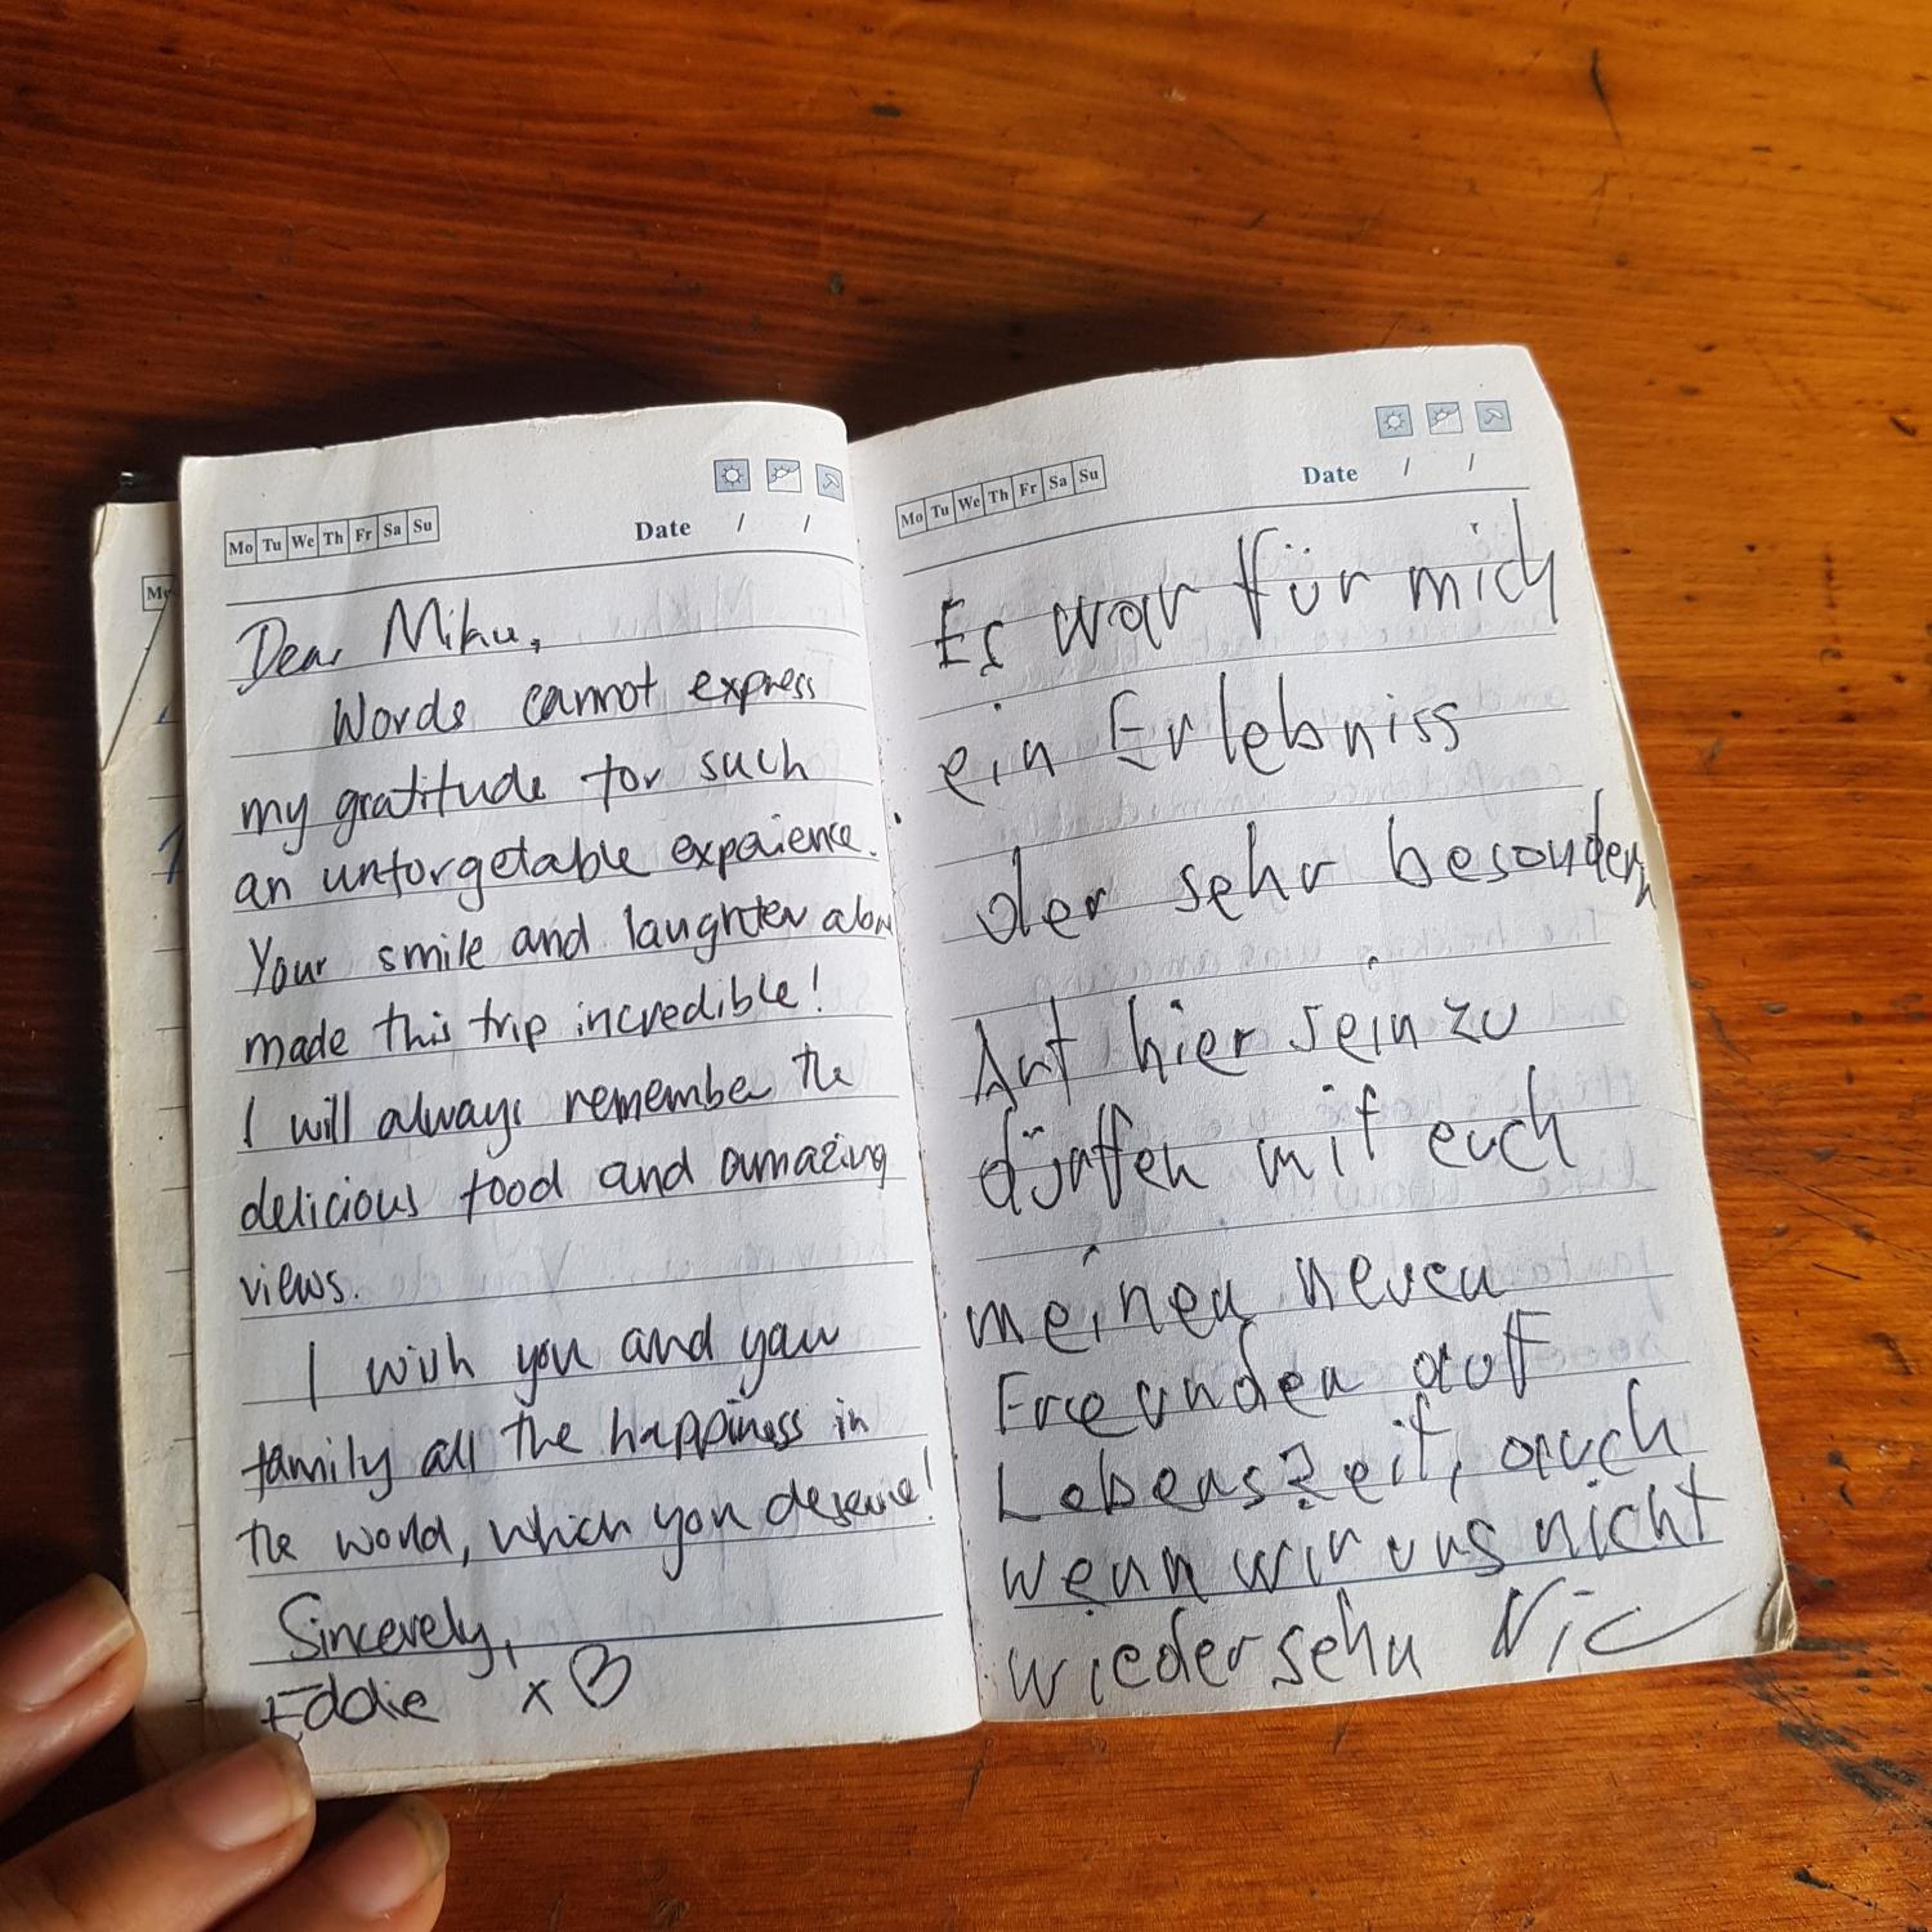 Mo Tu We Th Fr Sa Su
Date / /
Dear Mihu,
Words cannot express
my gratitude for such
an unforgetable expaience.
Your smile and laughter alow
made this trip incredible!
I will always remember the
delicious food and amazing
views.
I wish you and your
family all the happiness in
the world, which you deserve!
Sincerely,
Eddie x
Mo Tu We Th Fr Sa Su
Date / /
Es war für mich
ein Erlebniss
der sehr besondern
Art hier sein zu
dürffen mit euch
meinen neuen
Freunden auf
Lebenszeit, auch
wenn wir uns nicht
wiedersehn Nic